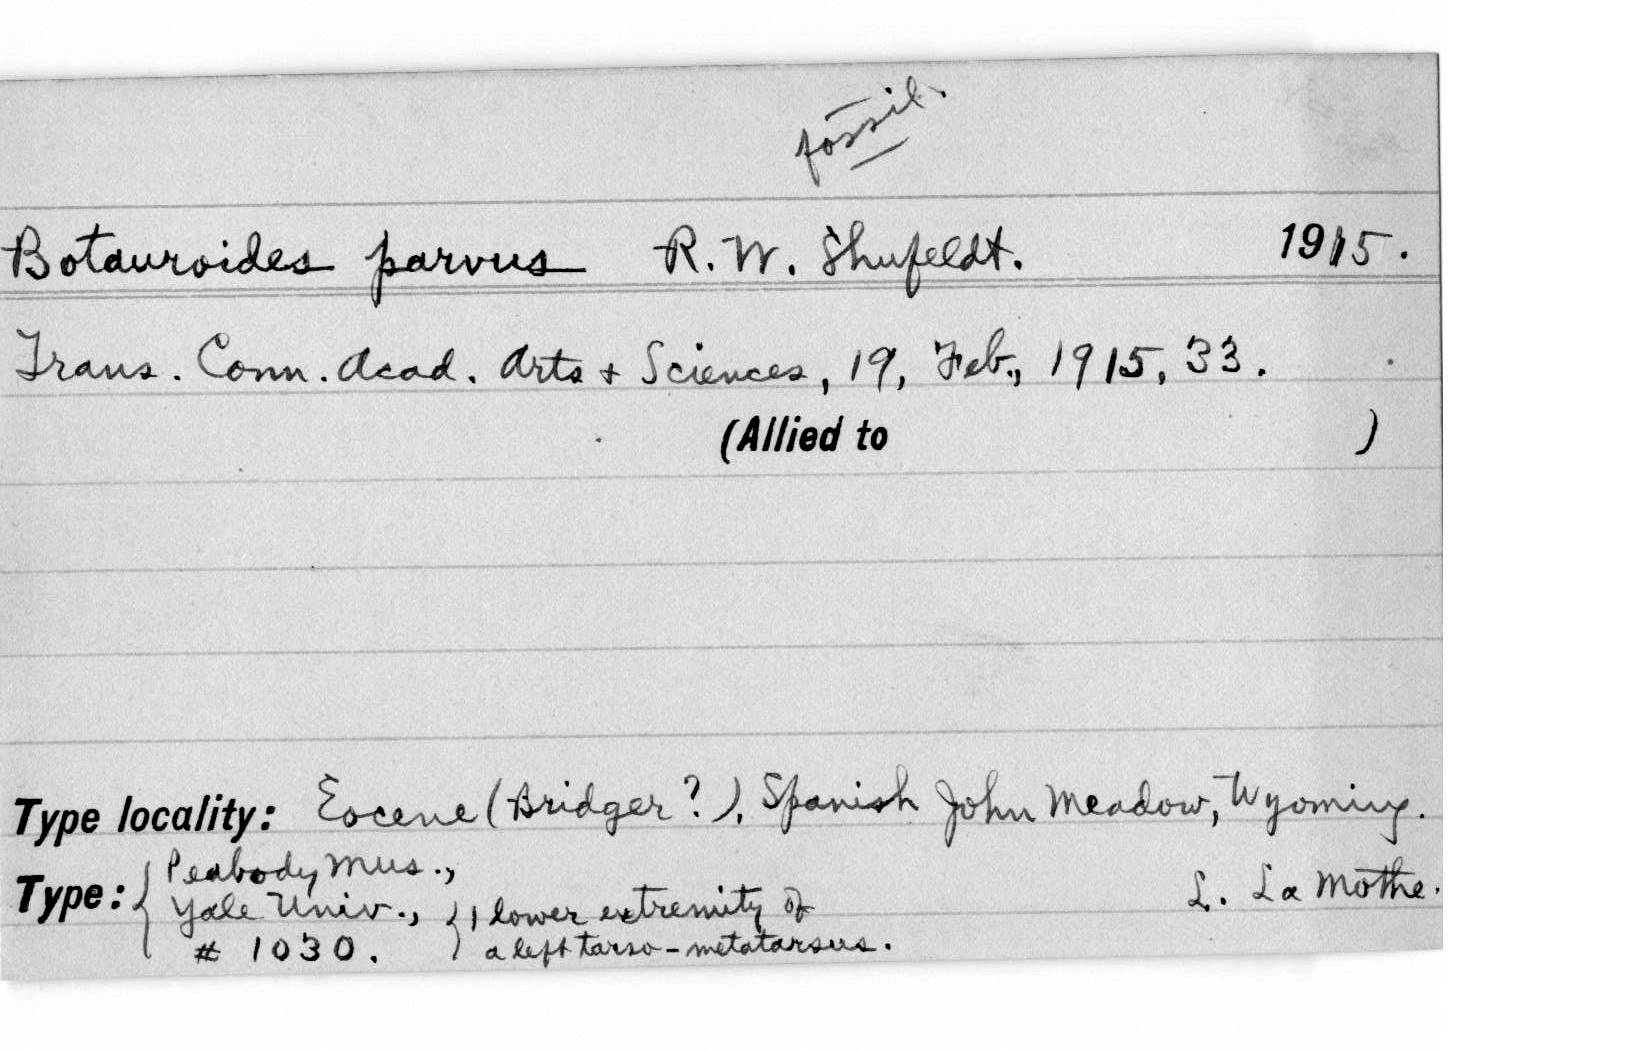 fossil.
Botauroides parvus R. W. Shufeldt. 1915.
Trans. Conn. Acad. Arts + Sciences, 19, Feb., 1915, 33.
(Allied to )
Type locality: Eocene (Bridger?), Spanish John Meadow, Wyoming.
Type: { Peabody Mus.,
Yale Univ., } 1 lower extremity of L. La Mothe.
# 1030. a left tarso-metatarsus.